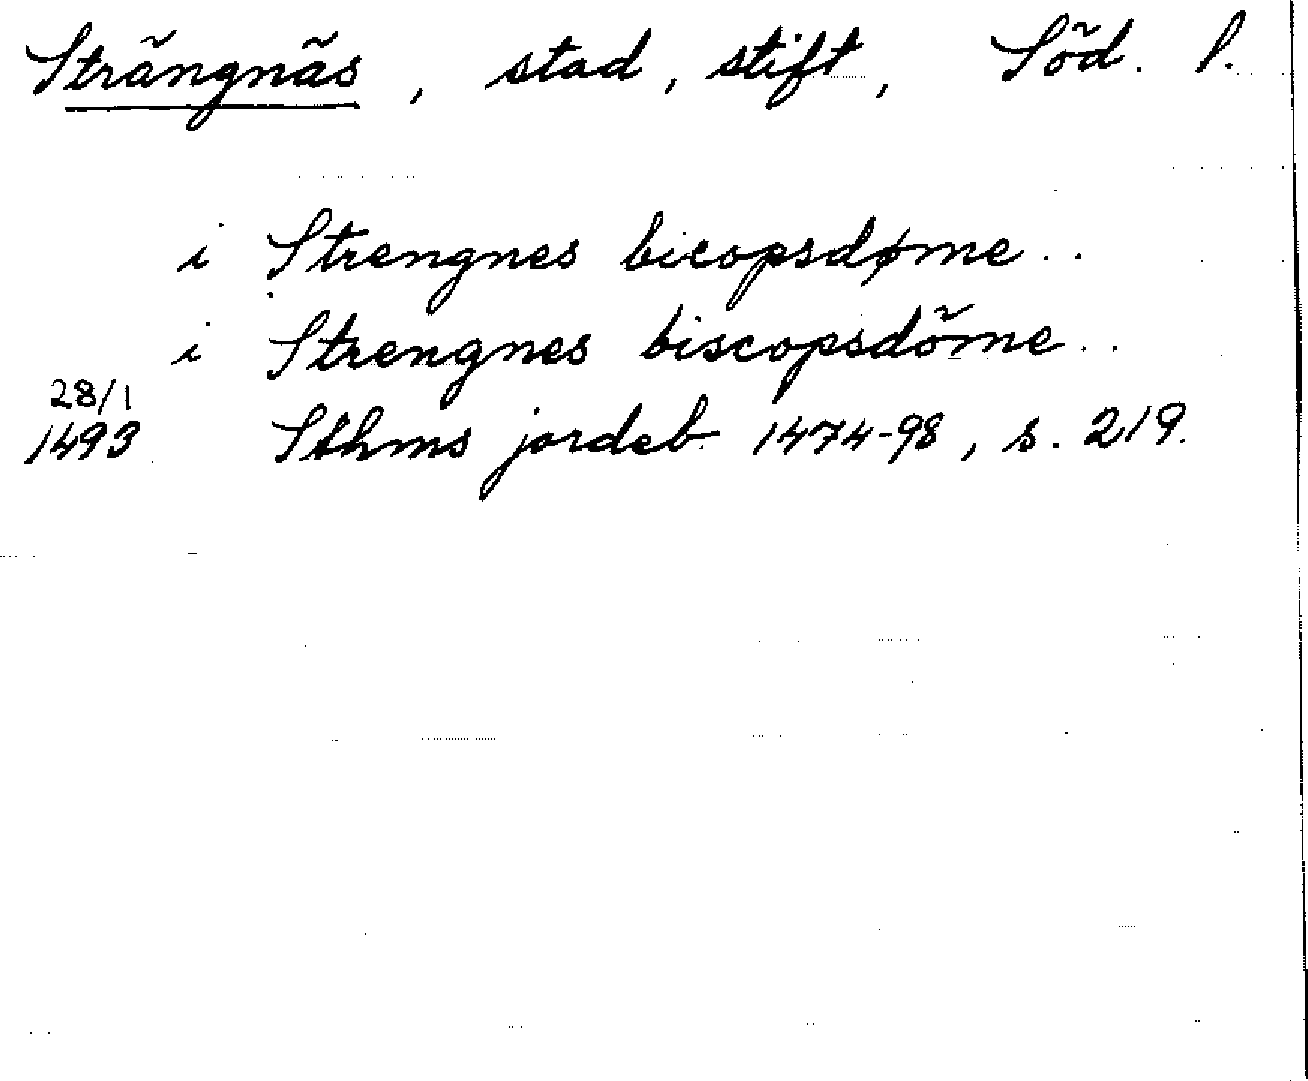 Strängnäs, stad, stift, Söd. l.
i Strengnes bicopsdøme ..
i Strengnes biscopsdöme ..
28/1
1493 Sthms jordeb. 1474-98, s. 219.